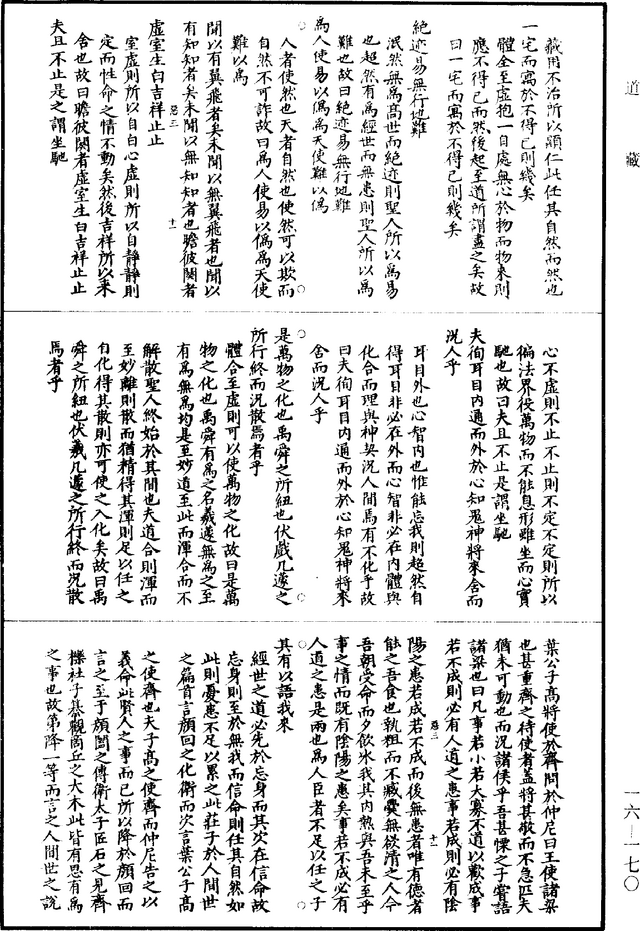 道藏
藏用不治所以顯仁此任其自然而然也
一宅而寓於不得已則幾矣
體全至虛抱一自處無心於物而物來則
應不得已而然後起至道所謂盡之矣故
曰一宅而寓於不得已則幾矣
絕迹易無行地難
泯然無為高世而絕迹則聖人所以為易
也超然有為經世而無患則聖人所以為
難也故曰絕迹易無行地難
為人使易以偽為天使難以偽
人者使然也天者自然也使然可以欺而
自然不可詐故曰為人使易以偽為天使
難以偽
聞以有翼飛者矣未聞以無翼飛者也聞以
有知知者矣未聞以無知知者也瞻彼闋者
虛室生白吉祥止止
惡三 十一
室虛則所以自白心虛則所以自靜靜則
定而性命之情不動矣然後吉祥所以來
舍也故曰瞻彼闋者虛室生白吉祥止止
夫且不止是之謂坐馳
心不虛則不止不止則不定不定則所以
徧法界役萬物而不能息形雖坐而心實
馳也故曰夫且不止是謂坐馳
夫徇耳目內通而外於心知鬼神將來舍而
況人乎
耳目外也心智內也惟能忘我則超然自
得耳目非必在外而心智非必在內體與
化合而理與神契況人間焉有不化乎故
曰夫徇耳目內通而外於心知鬼神將來
舍而況人乎
是萬物之化也禹舜之所紐也伏戲几蘧之
所行終而況散焉者乎
體合至虛則可以使萬物之化故曰是萬
物之化也禹舜有為之名羲蘧無為之至
有為無為均是至妙道至此而渾合而不
解散聖人終始於其間也夫道合則渾而
至妙離則散而猶精得其渾則足以任之
自化得其散則亦可使之入化矣故曰禹
舜之所紐也伏羲几蘧之所行終而況散
焉者乎
葉公子高將使於齊問於仲尼曰王使諸梁
也甚重齊之待使者蓋將甚敬而不急匹夫
猶未可動也而況諸侯乎吾甚慄之子嘗語
諸梁也曰凡事若小若大寡不道以歡成事
若不成則必有人道之患事若成則必有陰
陽之患若成若不成而後無患者唯有德者
能之吾食也執粗而不臧爨無欲清之人今
吾朝受命而夕飲冰我其內熱與吾未至乎
事之情而既有陰陽之患矣事若不成必有
人道之患是兩也為人臣者不足以任之子
其有以語我來
惡三 十二
經世之道必先於忘身而其次在信命故
忘身則至於無我而信命則任其自然如
此則憂患不足以累之此莊子於人間世
之篇首言顏回之化衛而次言葉公子高
之使齊也夫子高之使齊而仲尼告之以
義命此賢人之事而已所以降於顏回而
言之至于顏闔之傅衛太子匠石之見齊
櫟社子綦觀商丘之大木此皆有思有為
之事也故第降一等而言之人間世之說
一六—一七〇